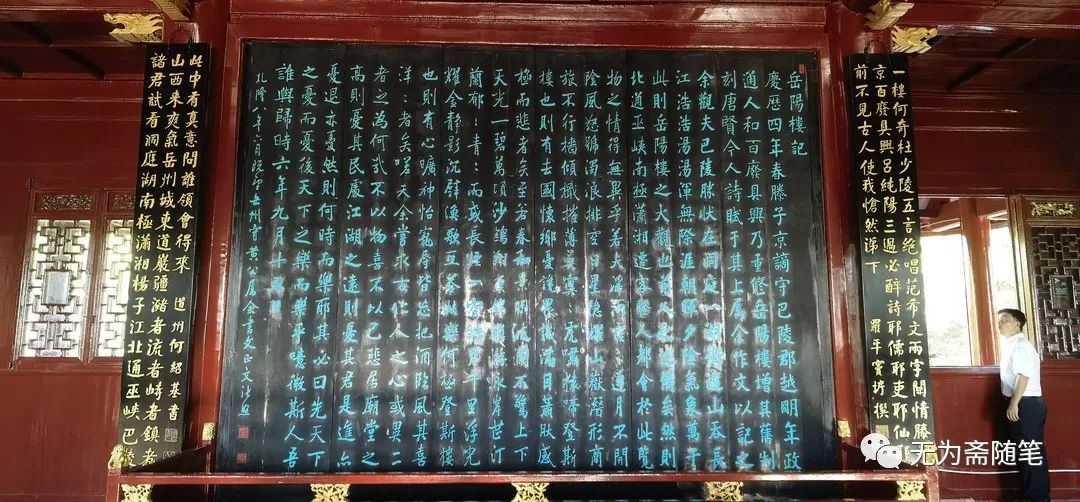 一樓何奇杜少陵五言絕唱范希文兩字關情滕子
京百廢具興呂純陽三過必醉詩耶儒耶吏耶仙
前不見古人使我愴然涕下 羅平竇垿撰
岳陽樓記
慶歷四年春滕子京謫守巴陵郡越明年政
通人和百廢具興乃重修岳陽樓增其舊制
刻唐賢今人詩賦于其上屬余作文以記之
余觀夫巴陵勝狀在洞庭一湖銜遠山吞長
江浩浩湯湯渾無際涯朝暉夕陰氣象萬千
此則岳陽樓之大觀也前人之述備矣然則
北通巫峽南極瀟湘遷客騷人多會於此覽
物之情得無異乎若夫霪雨霏霏連月不開
陰風怒號濁浪排空日星隱耀山嶽潛形商
旅不行檣傾楫摧薄暮冥冥虎嘯猿啼登斯
樓也則有去國懷鄉憂讒畏譏滿目蕭然感
極而悲者矣至若春和景明波瀾不驚上下
天光一碧萬頃沙鷗翔集錦鱗游泳岸芷汀
蘭郁郁青青而或長煙一空皓月千里浮光
耀金靜影沉璧漁歌互答此樂何極登斯樓
也則有心曠神怡寵辱皆忘把酒臨風其喜
洋洋者矣嗟夫余嘗求古仁人之心或異二
者之為何哉不以物喜不以己悲居廟堂之
高則憂其民處江湖之遠則憂其君是進亦
憂退亦憂然則何時而樂耶其必曰先天下
之憂而憂後天下之樂而樂乎噫微斯人吾
誰與歸時六年九月十五日
諸君試看洞庭湖南極瀟湘楊子江北通巫峽巴陵
山西來爽氣岳州城東道巖疆瀦者流者峙者鎮者
此中有真意問誰領會得來 道州何紹基書
无为斋随笔